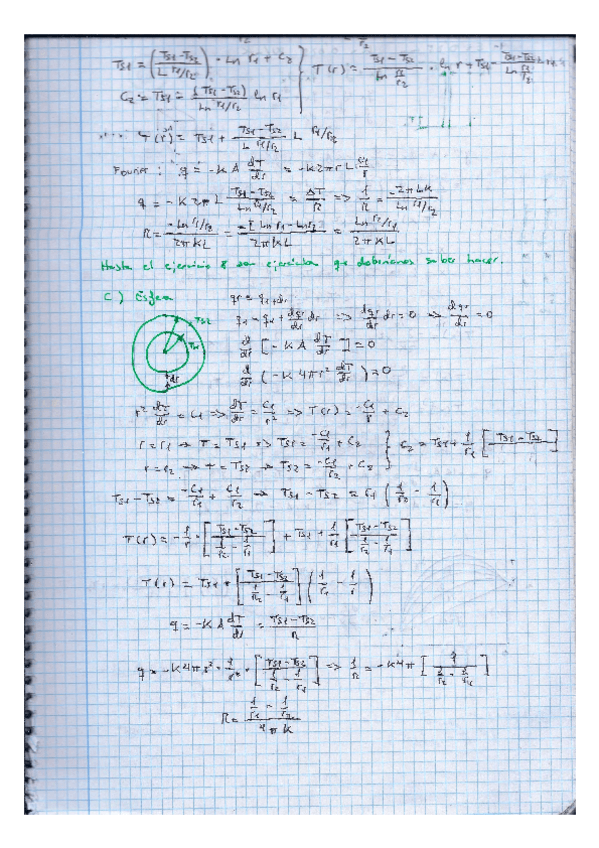 Ts1 = ((Ts1-Ts2)/(L r1/r2)) · Ln r1 + C2 } T(r) = (Ts1-Ts2)/(Ln r1/r2) · ln r + Ts1 - (Ts1-Ts2)/(Ln r1/r2)
C2 = Ts1 = (Ts1-Ts2)/(Ln r1/r2) ln r1
T(r) = Ts1 + (Ts1-Ts2)/(L r1/r2) L r/r1
Fourier: q = -K A dT/dr = -K 2πr L
q = -K 2π L (Ts1-Ts2)/(Ln r1/r2) = ΔT/R => 1/R = -2πLK/(Ln r1/r2)
R = (-Ln r1/r2)/(2πKL) = (-[Ln r1 - Ln r2])/(2πKL) = (Ln r2/r1)/(2πKL)
Hasta el ejercicio 8 son ejercicios que deberíamos saber hacer.
C) Esfera
qr = qr+dr
Ts2
Ts1
dr
qr = qr + dqr/dr dr => dqr/dr dr = 0 => dqr/dr = 0
d/dr [-K A dT/dr] = 0
d/dr (-K 4πr² dT/dr) = 0
r² dT/dr = C1 => dT/dr = C1/r² => T(r) = -C1/r + C2
r = r1 => T = Ts1 => Ts1 = -C1/r1 + C2 } C2 = Ts1 + 1/r1 [Ts1-Ts2
r = r2 => T = Ts2 => Ts2 = -C1/r2 + C2
Ts1 - Ts2 = -C1/r1 + C1/r2 => Ts1 - Ts2 = C1 (1/r2 - 1/r1)
T(r) = -1/r · [(Ts1-Ts2)/(1/r2 - 1/r1)] + Ts1 + 1/r1 [(Ts1-Ts2)/(1/r2 - 1/r1)]
T(r) = Ts1 + [(Ts1-Ts2)/(1/r2 - 1/r1)] (1/r1 - 1/r)
q = -K A dT/dr = (Ts1-Ts2)/R
q = -K 4πr² · 1/r² · [(Ts1-Ts2)/(1/r2 - 1/r1)] => 1/R = -K 4π [1/(1/r2 - 1/r1)]
R = (1/r1 - 1/r2)/(4πK)